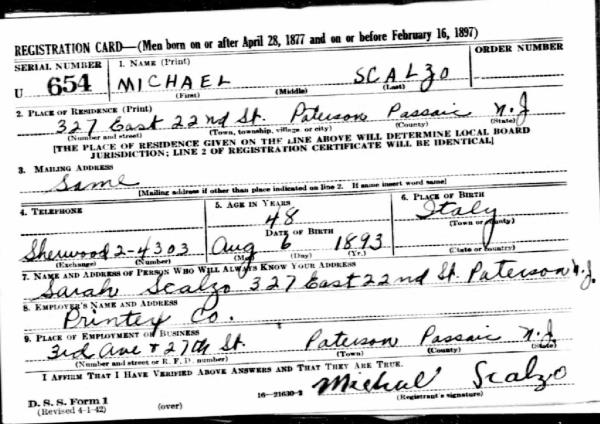 REGISTRATION CARD—(Men born on or after April 28, 1877 and on or before February 16, 1897)
SERIAL NUMBER 1. NAME (Print) ORDER NUMBER
U 654 MICHAEL SCALZO
(First) (Middle) (Last)
2. PLACE OF RESIDENCE (Print)
327 East 22nd St. Paterson Passaic N.J
(Number and street) (Town, township, village, or city) (County) (State)
[THE PLACE OF RESIDENCE GIVEN ON THE LINE ABOVE WILL DETERMINE LOCAL BOARD
JURISDICTION; LINE 2 OF REGISTRATION CERTIFICATE WILL BE IDENTICAL]
3. MAILING ADDRESS
Same
[Mailing address if other than place indicated on line 2. If same insert word same]
4. TELEPHONE 5. AGE IN YEARS 6. PLACE OF BIRTH
48 Italy
DATE OF BIRTH (Town or county)
Sherwood 2-4303 Aug 6 1893
(Exchange) (Number) (Mo.) (Day) (Yr.) (State or country)
7. NAME AND ADDRESS OF PERSON WHO WILL ALWAYS KNOW YOUR ADDRESS
Sarah Scalzo 327 East 22nd St. Paterson N.J.
8. EMPLOYER'S NAME AND ADDRESS
Printex Co.
9. PLACE OF EMPLOYMENT OR BUSINESS
3rd Ave + 27th St. Paterson Passaic N.J
(Number and street or R. F. D. number) (Town) (County) (State)
I AFFIRM THAT I HAVE VERIFIED ABOVE ANSWERS AND THAT THEY ARE TRUE.
D. S. S. Form 1 16—21630-2 Michael Scalzo
(Revised 4-1-42) (over) (Registrant's signature)